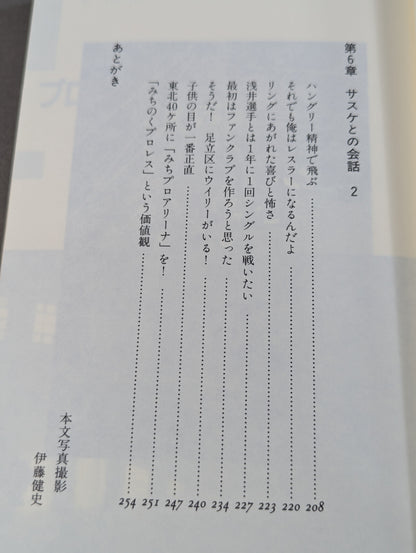 第6章 サスケとの会話 2
ハングリー精神で飛ぶ……208
それでも俺はレスラーになるんだよ……220
リングにあがれた喜びと怖さ……223
浅井選手とは1年に1回シングルを戦いたい……227
最初はファンクラブを作ろうと思った……234
そうだ! 足立区にウイリーがいる!……240
子供の目が一番正直……247
東北40ヶ所に「みちプロアリーナ」を!……251
「みちのくプロレス」という価値観……254
あとがき
本文写真撮影
伊藤健史